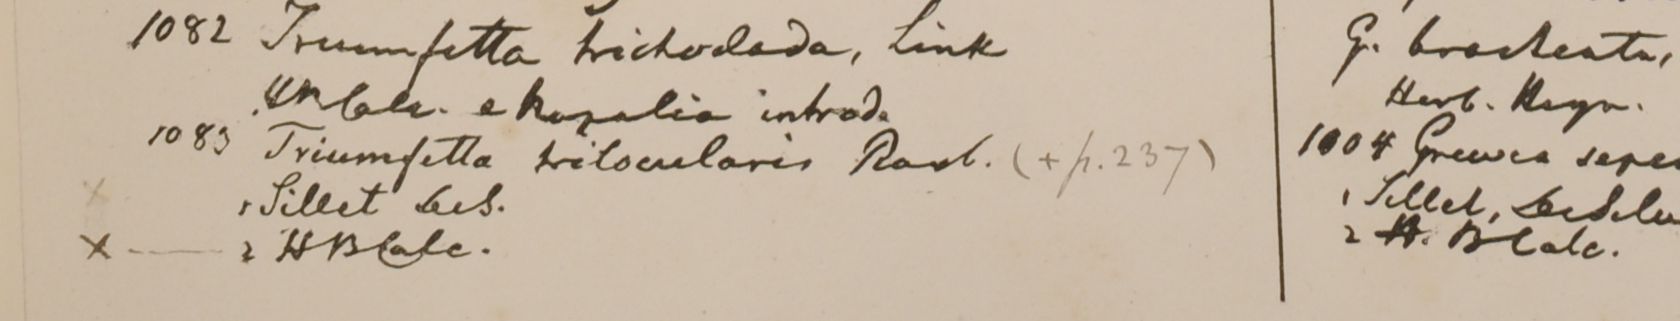 1082 Triumfetta trichoclada, Link
HBCalc. e introd.
1083 Triumfetta trilocularis Roxb. (+ p. 237)
x 1 Sillet deS.
x — 2 HBCalc.
G. bracteata,
Herb. Heyn.
1084 Grewia sepe
1 Sillet, deSilv
2 H. BCalc.